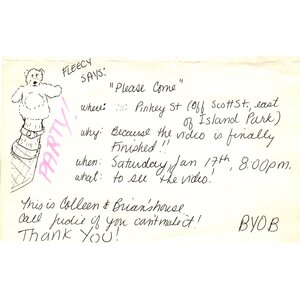 FLEECY
SAYS:
"Please Come"
where: Pinkey St (Off Scott St., east
of Island Park)
PARTY!
why: Because the video is finally
Finished!!
when: Saturday, Jan 17th, 8:00pm.
what: to see the video!
This is Colleen & Brian's house
Call Judie if you can't make it!
Thank You!
BYOB